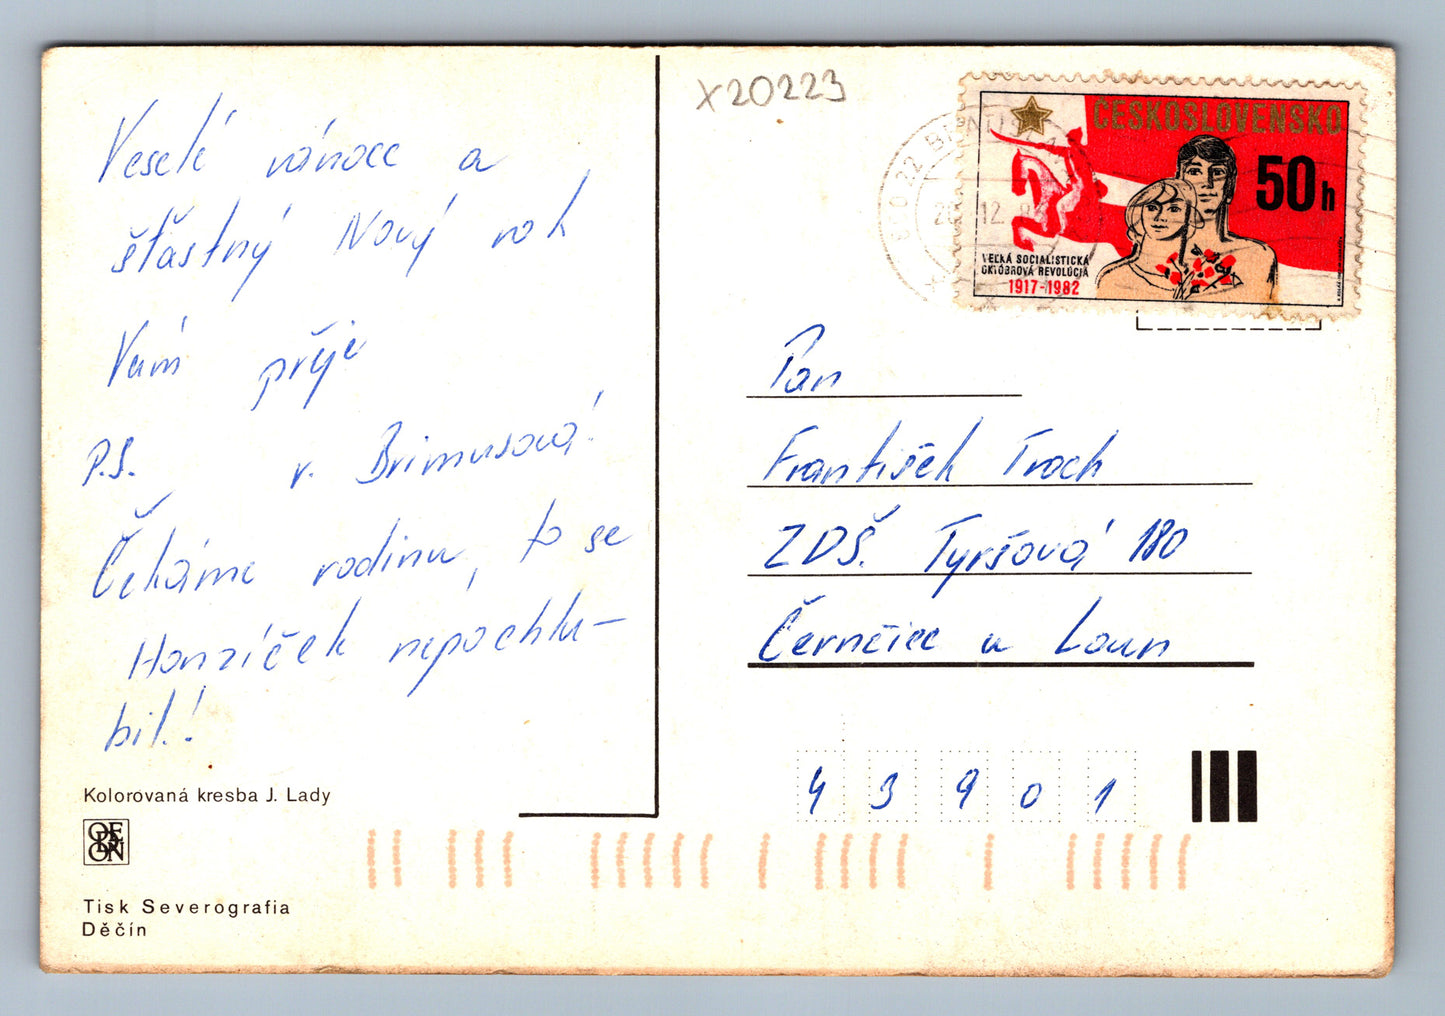 Veselé vánoce a
šťastný Nový rok
Vám přeje
P.S. r. Brimusová!
Čekáme rodinu, to se
Honzíček nepochlu-
bil!
Kolorovaná kresba J. Lady
ORBIS
Tisk Severografia
Děčín
X20223
ČESKOSLOVENSKO
50h
VEĽKÁ SOCIALISTICKÁ
OKTÓBROVÁ REVOLÚCIA
1917-1982
12
Pan
František Troch
ZDŠ. Tyršová 180
Černčice u Loun
43901